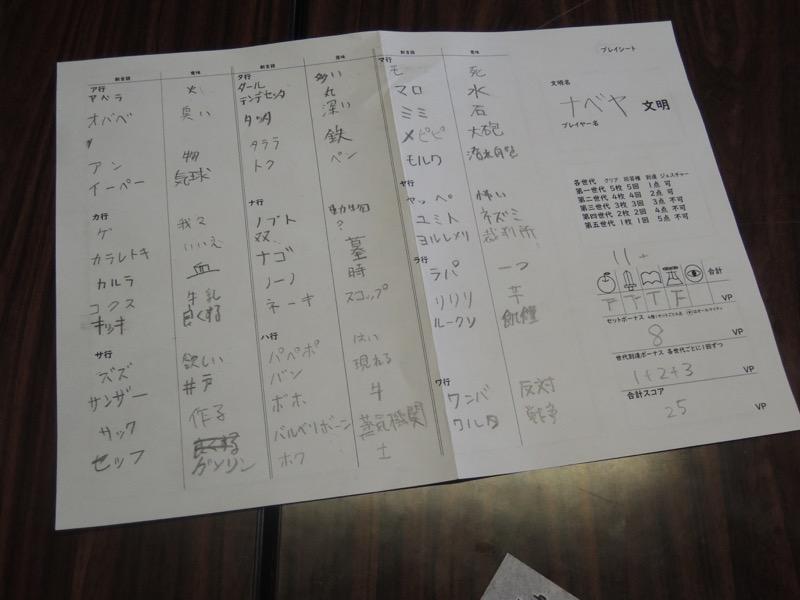 新言語 意味
ア行
アベラ 火
オババ 臭い
アン 物
イーペー 気球
カ行
ゲ 我々
カラレトキ いいえ
カルラ 血
コクス 牛乳
キッキ 良くする
サ行
ズズ 欲しい
サンザー 井戸
サック 作る
セッフ ガソリン
新言語 意味
タ行
ダール 多い
テンデセッタ 丸
タッタ 深い
タララ 鉄
トク ペン
ナ行
ノブト 動物
双 ?
ナゴ 墓
ノーノ 時
ネーキ スコップ
ハ行
パペポ はい
バン 現れる
ボホ 牛
バルベリボーニ 蒸気機関
ホワ 土
新言語 意味
マ行
モ 死
マロ 水
ミミ 石
メピピ 大砲
モルワ
ヤ行
ヤッペ 怖い
ユミト ネズミ
ヨルレメリ 裁判所
ラ行
ラパ 一つ
リリリ 羊
ルークソ 飢饉
ワ行
ワンバ 反対
ワルタ 戦争
プレイシート
文明名
ナベヤ 文明
プレイヤー名
各世代 クリア 回答権 到達 ジェスチャー
第一世代 5枚 5回 1点 可
第二世代 4枚 4回 2点 可
第三世代 3枚 3回 3点 不可
第四世代 2枚 2回 4点 不可
第五世代 1枚 1回 5点 不可
11
合計
VP
セットボーナス
8 VP
世代到達ボーナス 各世代ごとに1回ずつ
1+2+3 VP
合計スコア
25 VP